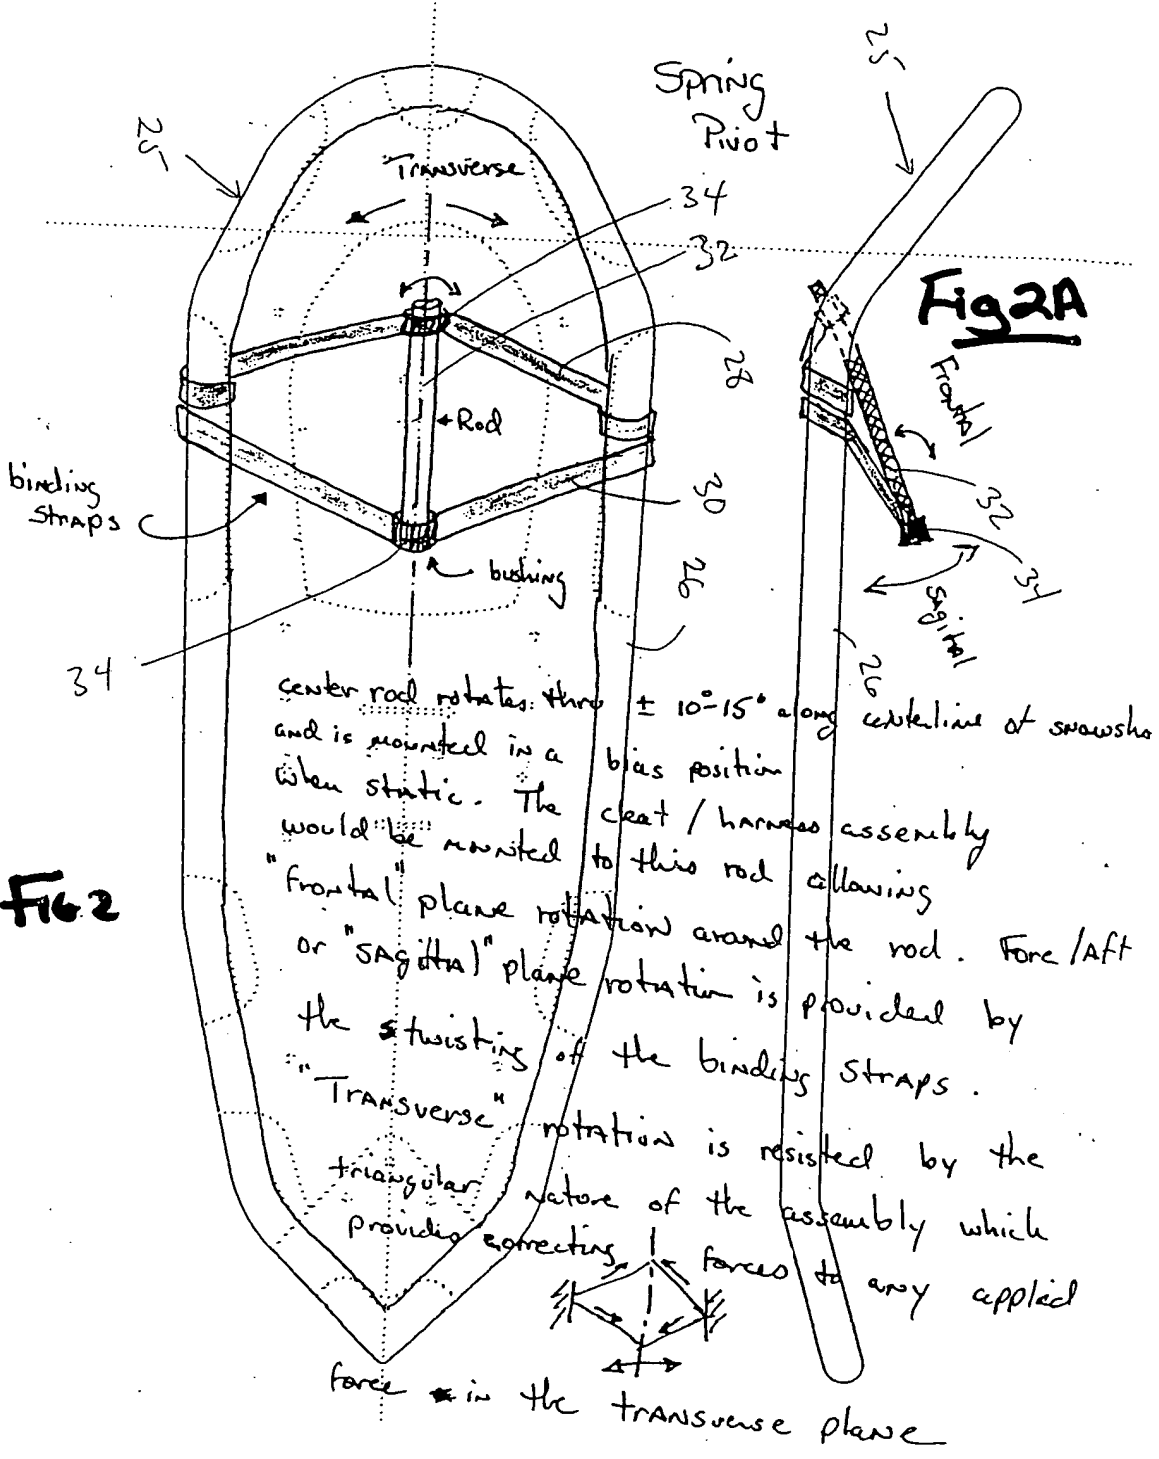 Spring
Pivot
25
25
Transverse
34
32
Fig 2A
Frontal
28
Rod
binding
straps
30
32
bushing
26
34
Sagital
34
26
center rod rotates thru ± 10°-15° along centerline of snowsho
and is mounted in a bias position
when static. The cleat / harness assembly
would be mounted to this rod allowing
"frontal" plane rotation around the rod. Fore/Aft
or "sagittal" plane rotation is provided by
the twisting of the binding straps.
"Transverse" rotation is resisted by the
triangular nature of the assembly which
provides correcting forces to any applied
force in the transverse plane
Fig 2